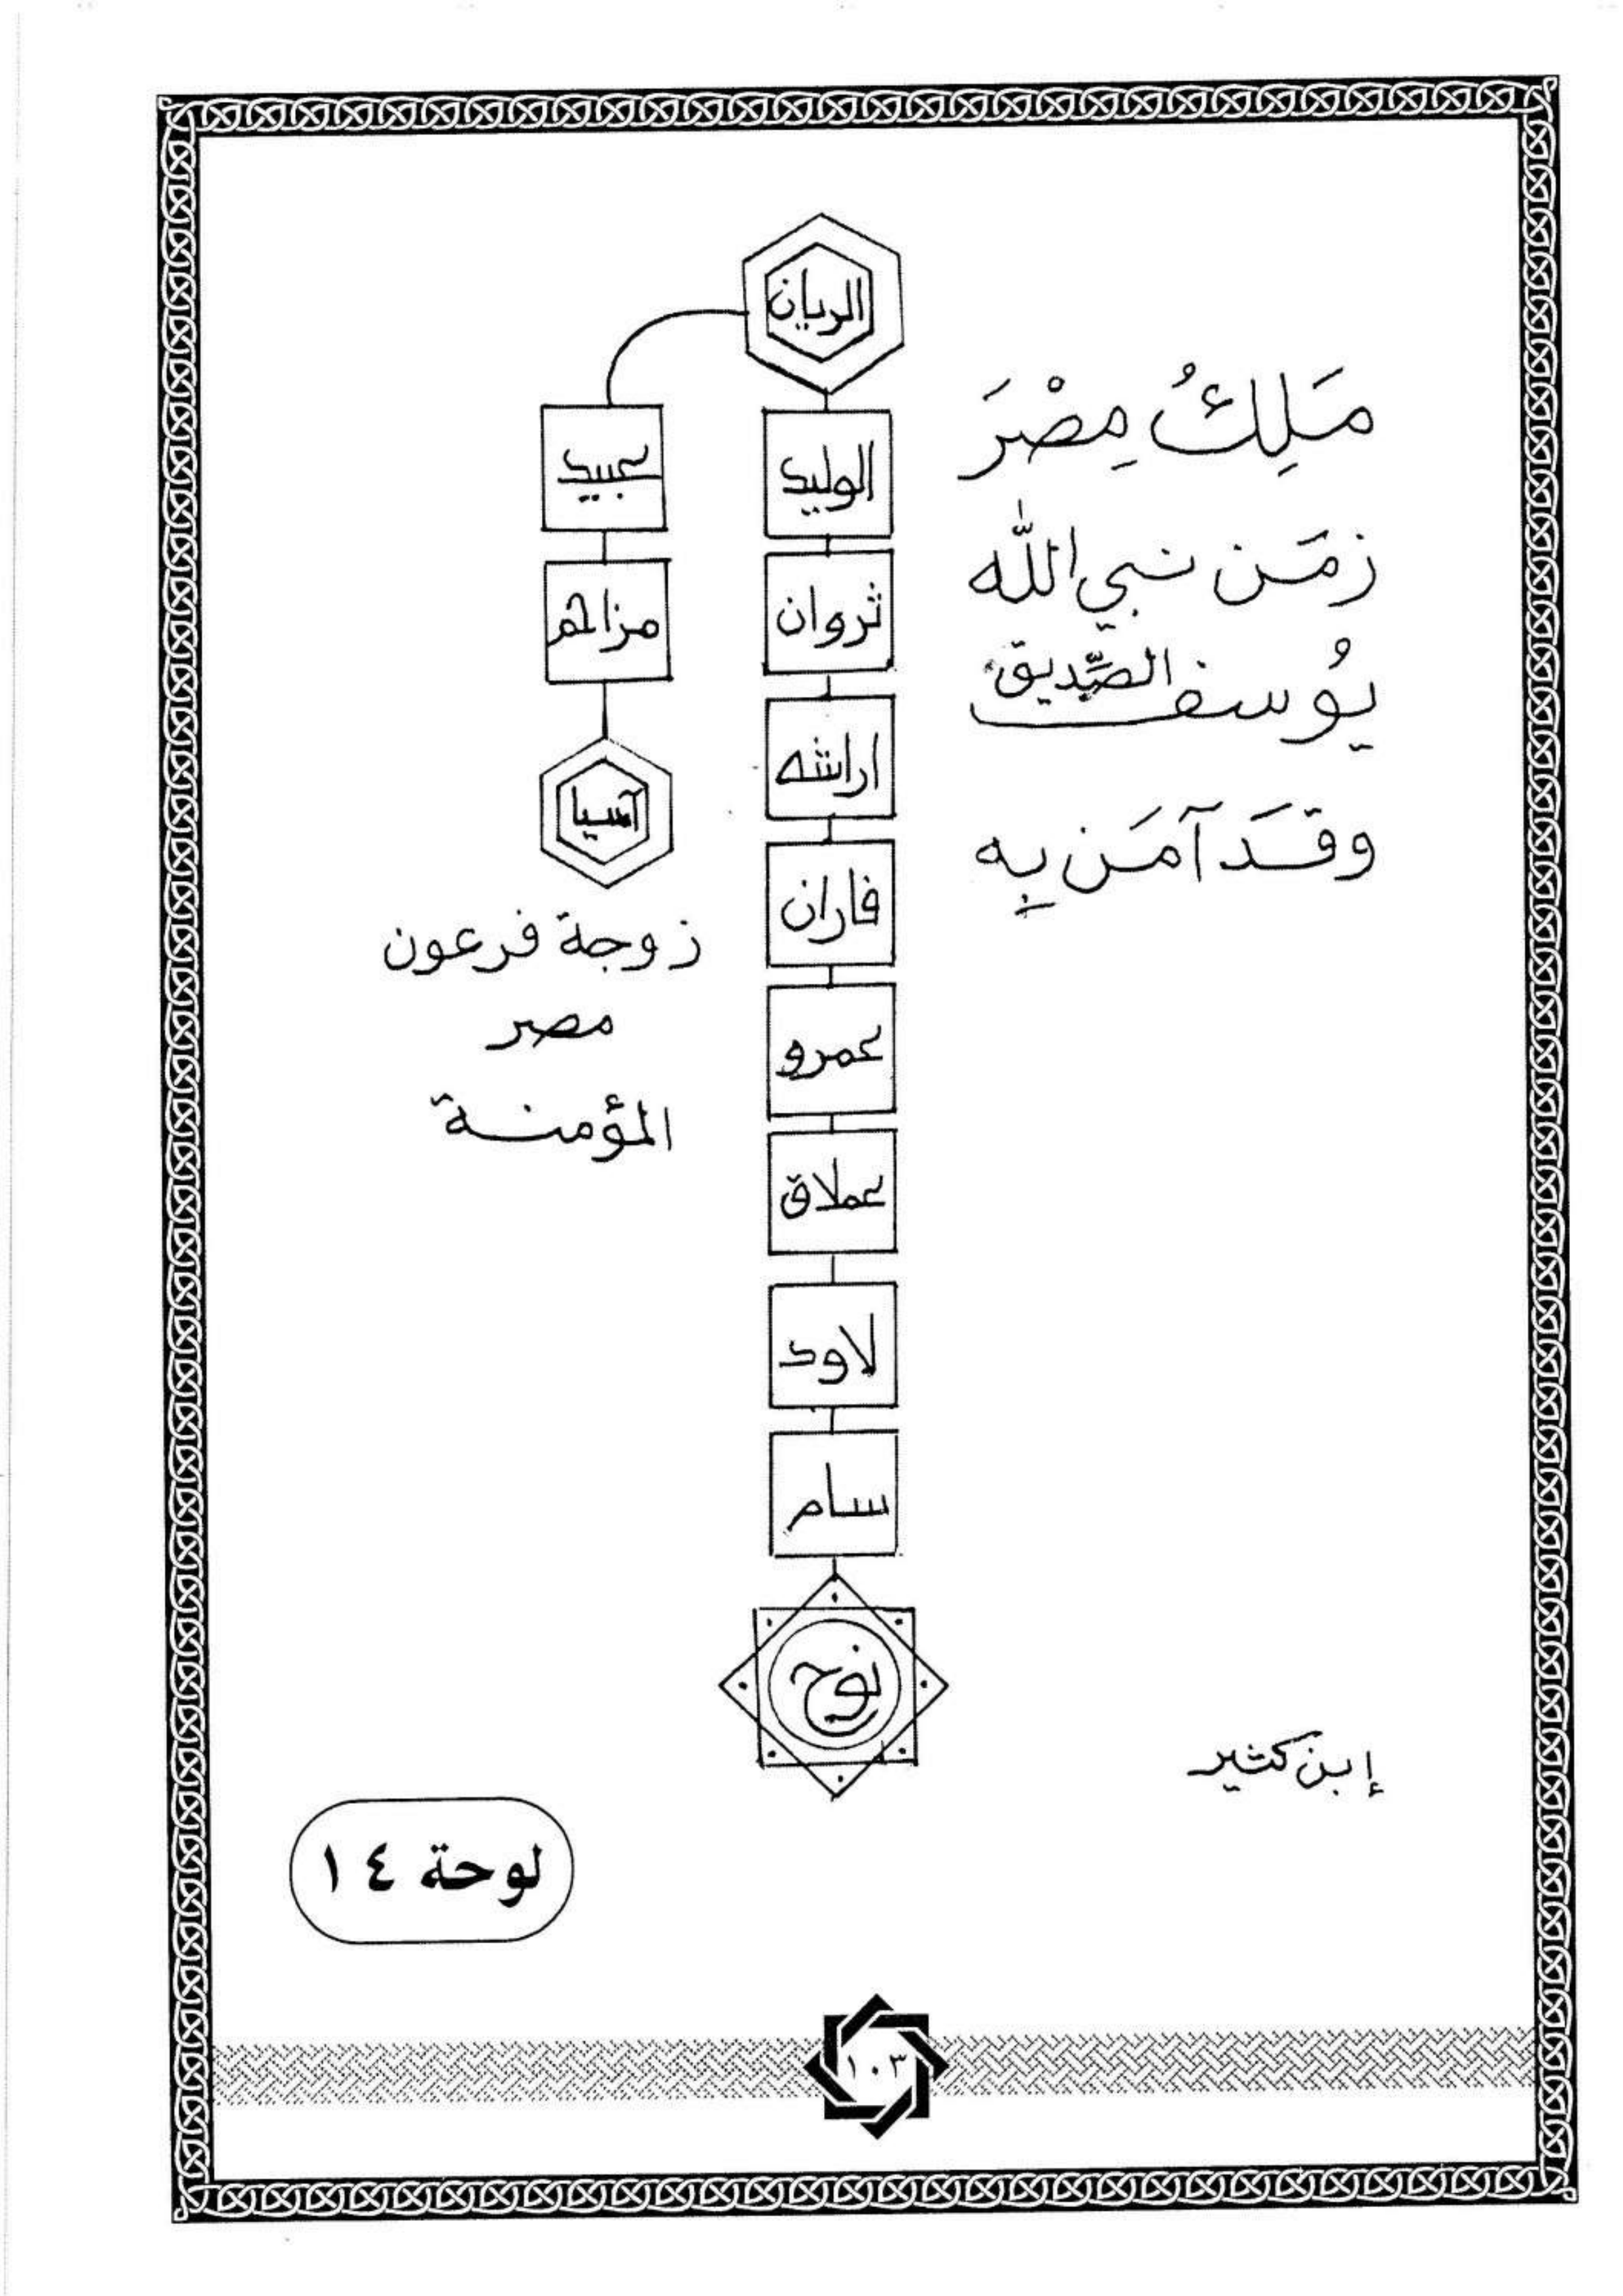 الريان
مَلِكُ مِصْرَ
زمَن نبي اللّه
يُوسف الصِّديق
وقَد آمَن بِه
الوليد
ثروان
اراشه
فاران
عمرو
عملاق
لاود
سام
نوح
عبيد
مزاحم
آسيا
زوجة فرعون
مصر
المؤمنة
إبن كثير
لوحة ١٤
١٠٣